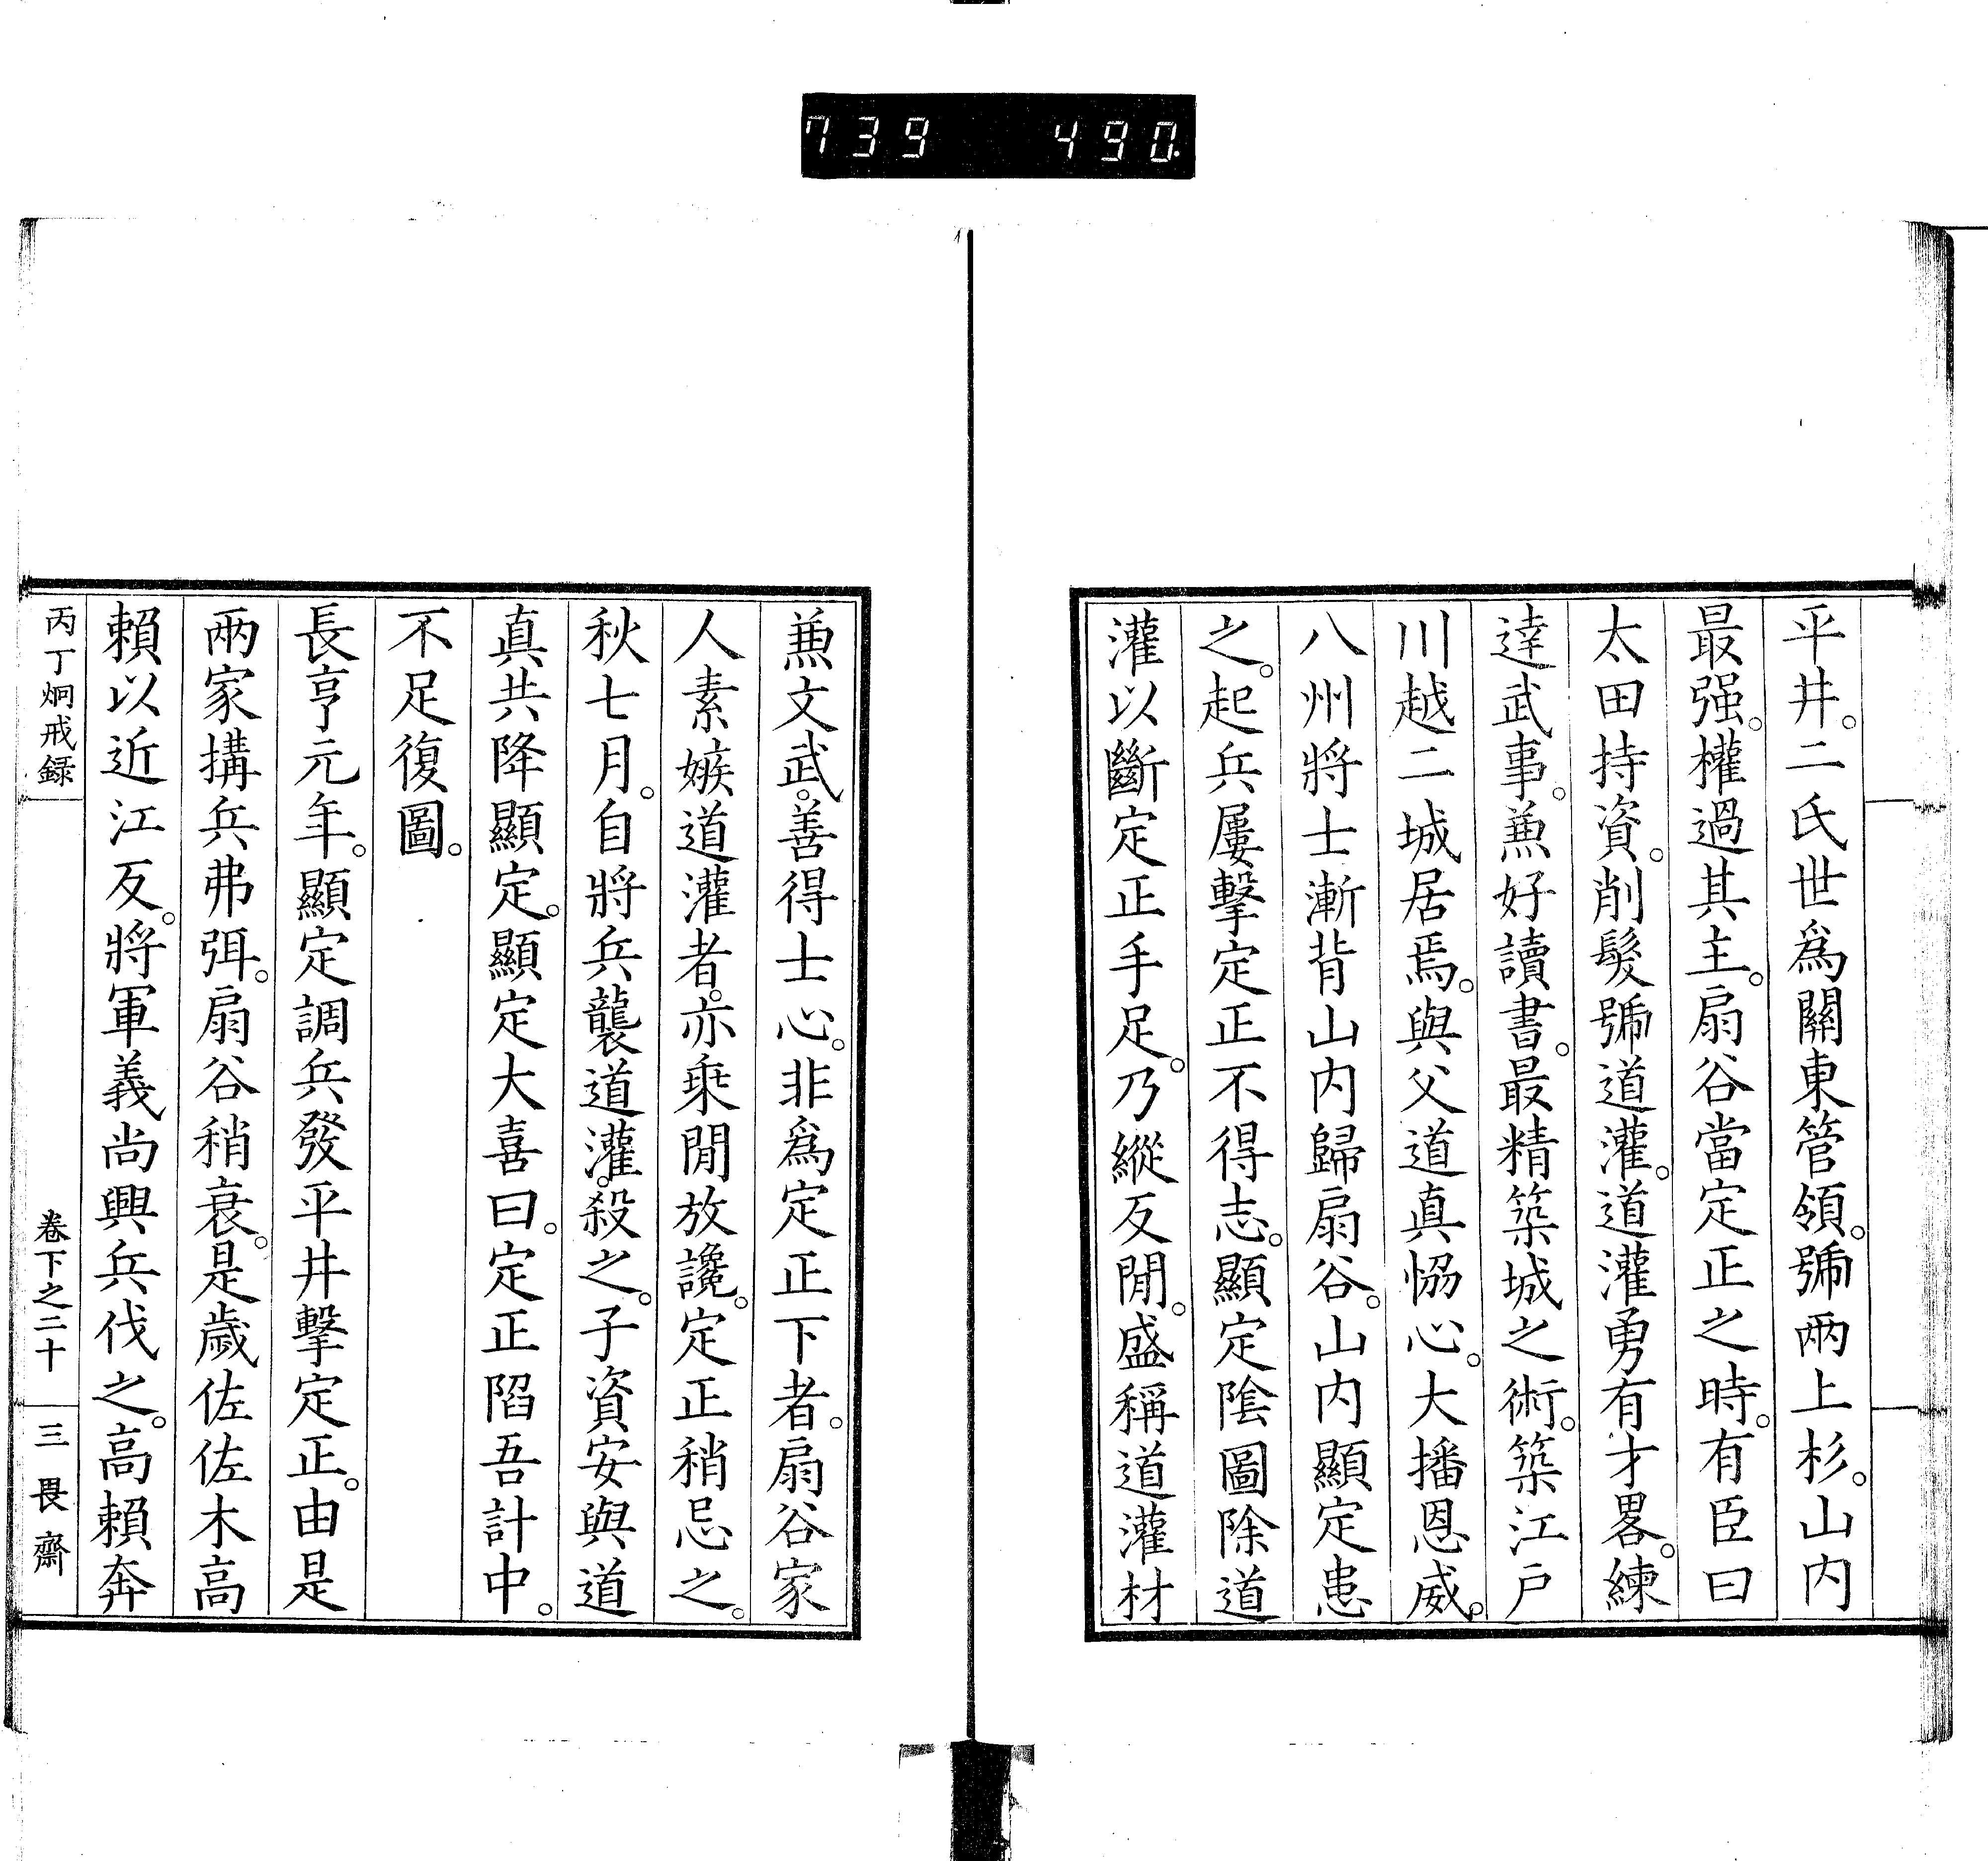 739 490.
平井。二氏世爲關東管領。號兩上杉。山内
最强。權過其主。扇谷當定正之時。有臣曰
太田持資。削髮號道灌。道灌勇有才畧。練
達武事。兼好讀書。最精築城之術。築江戶
川越二城居焉。與父道真恊心。大播恩威。
八州將士漸背山内歸扇谷。山内顯定患
之。起兵屢擊定正不得志。顯定陰圖除道
灌以斷定正手足。乃縱反閒。盛稱道灌材
兼文武。善得士心。非爲定正下者。扇谷家
人素嫉道灌者。亦乘閒放讒。定正稍忌之。
秋七月。自將兵襲道灌。殺之。子資安與道
真共降顯定。顯定大喜曰。定正陷吾計中。
不足復圖。
長亨元年。顯定調兵發平井擊定正。由是
兩家搆兵弗弭。扇谷稍衰。是歲佐佐木高
賴以近江反。將軍義尚興兵伐之。高賴奔
丙丁炯戒録 卷下之二十 三畏齋